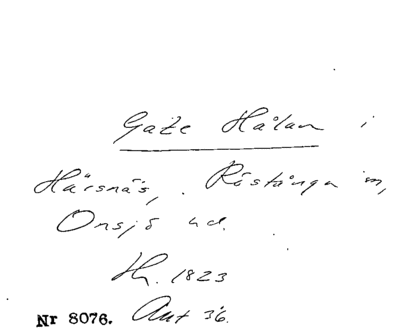 Gate Hålan i
Härsnäs, Röstånga sn,
Onsjö hd.
Hr. 1823
Nr 8076. Ant 36.